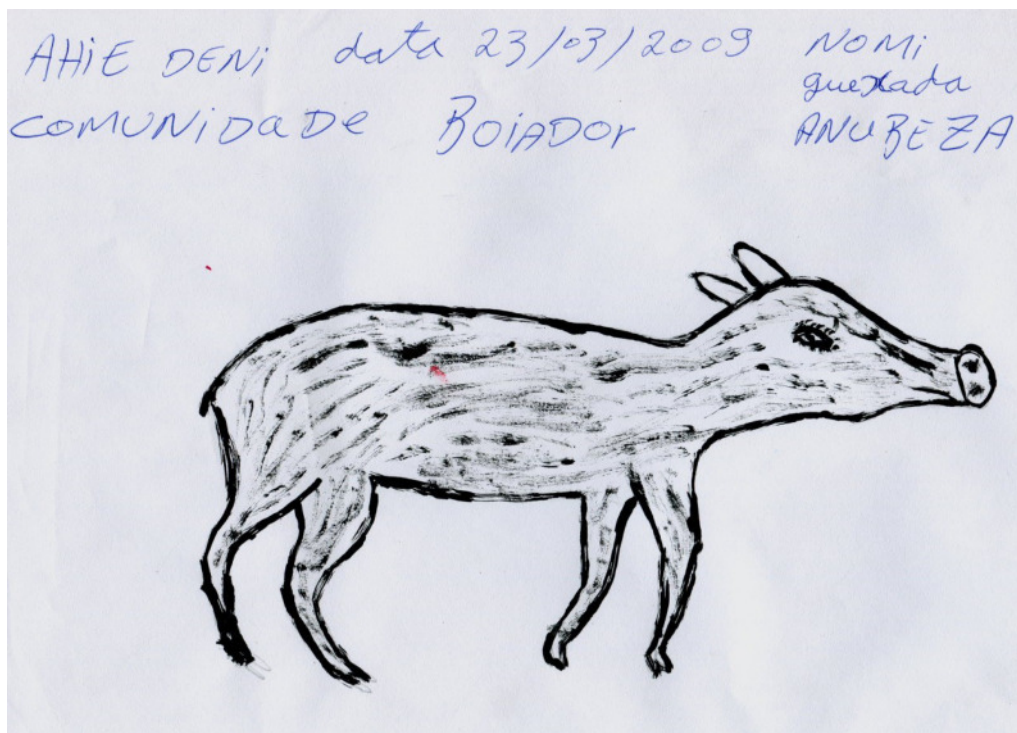 AHiE DENi data 23/03/2009 NOMi
guexada
COMUNiDaDe BOiADOr ANUBEZA